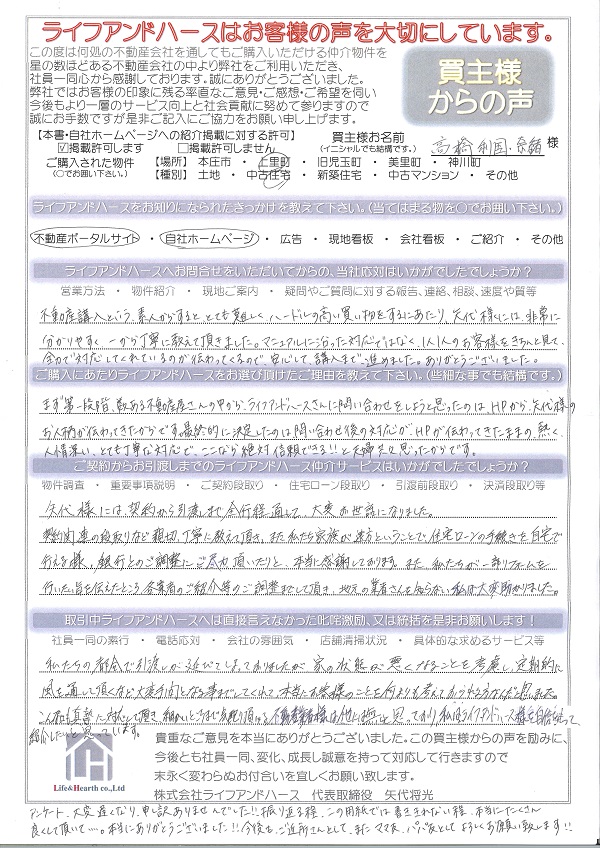 ライフアンドハースはお客様の声を大切にしています。
この度は何処の不動産会社を通してもご購入いただける仲介物件を
星の数ほどある不動産会社の中より弊社をご利用いただき、
社員一同心から感謝しております。誠にありがとうございました。
弊社ではお客様の印象に残る率直なご意見・ご感想・ご希望を伺い
今後もより一層のサービス向上と社会貢献に努めて参りますので
誠にお手数ですが是非ご記入にご協力をお願い申し上げます。
買主様
からの声
【本書・自社ホームページへの紹介掲載に対する許可】
☑掲載許可します □掲載許可しません
買主様お名前
(イニシャルでも結構です。)
高橋 利国 様
ご購入された物件
(○でお囲い下さい。)
【場所】 本庄市 ・ 上里町 ・ 旧児玉町 ・ 美里町 ・ 神川町
【種別】 土地 ・ 中古住宅 ・ 新築住宅 ・ 中古マンション ・ その他
ライフアンドハースをお知りになられたきっかけを教えて下さい。(当てはまる物を○でお囲い下さい。)
不動産ポータルサイト ・ 自社ホームページ ・ 広告 ・ 現地看板 ・ 会社看板 ・ ご紹介 ・ その他
ライフアンドハースへお問合せをいただいてからの、当社応対はいかがでしたでしょうか?
営業方法 ・ 物件紹介 ・ 現地ご案内 ・ 疑問やご質問に対する報告、連絡、相談、速度や質等
不動産購入という、素人からするととても難しく、ハードルの高い買い物をするにあたり、矢代様には、非常に
分かりやすく、一から丁寧に教えて頂きました。マニュアルに沿った対応ではなく、1人1人のお客様をきちんと見て、
全力で対応してくれているのが伝わってくるので、安心して、購入まで進めました。ありがとうございました。
ご購入にあたりライフアンドハースをお選び頂けたご理由を教えて下さい。(些細な事でも結構です。)
まず第一段階、数ある不動産屋さんの中から、ライフアンドハースさんに問い合わせをしようと思ったのは、HPから、矢代様の
お人柄が伝わってきたからです。最終的に決定したのは問い合わせ後の対応が、HPから伝わってきたままの、熱く、
人情深い、とても丁寧な対応で、ここなら絶対信頼できる!!と夫婦共に思ったからです。
ご契約からお引渡しまでのライフアンドハース仲介サービスはいかがでしたでしょうか?
物件調査 ・ 重要事項説明 ・ ご契約段取り ・ 住宅ローン段取り ・ 引渡前段取り ・ 決済段取り等
矢代様には、契約から引渡まで、全行程通して、大変お世話になりました。
契約関連の段取りなど親切、丁寧に教えて頂き、また私たち家族が遠方ということで住宅ローンの手続きを自宅で
行える様、銀行とのご調整にご尽力頂いたりと、本当に感謝しております。また、私たちが一部リフォームを
行いたい旨を伝えたところ、各業者のご紹介等のご調整までして頂き、地元の業者さんを知らない私は大変助かりました。
取引中ライフアンドハースへは直接言えなかった叱咤激励、又は統括を是非お願いします!
社員一同の素行 ・ 電話応対 ・ 会社の雰囲気 ・ 店舗清掃状況 ・ 具体的な求めるサービス等
私たちの都合で引渡しが延びてしまっておりましたが、家の状態が悪くなることを考慮し、定期的に
風を通して頂くなど、大変手間となる事までしてくれて、本当にお客様のことを何よりも考えておられる方なんだと思いました。
こんなにも真摯に対応して頂き、細かいところまで気配り頂ける不動産屋様は他に無いと思っており、私はライフアンドハース様を自信もって
紹介したいと思っています。
Life&Hearth co.,Ltd
貴重なご意見を本当にありがとうございました。この買主様からの声を励みに、
今後とも社員一同、変化、成長し誠意を持って対応して行きますので
末永く変わらぬお付合いを宜しくお願い致します。
株式会社ライフアンドハース 代表取締役 矢代将光
アンケート、大変遅くなり、申し訳ありませんでした!!振り返る程、この用紙では書ききれない程、本当にたくさん
良くして頂いて…。本当にありがとうございました!!今後も、ご近所さんとして、またママ友、パパ友としてよろしくお願い致します!!